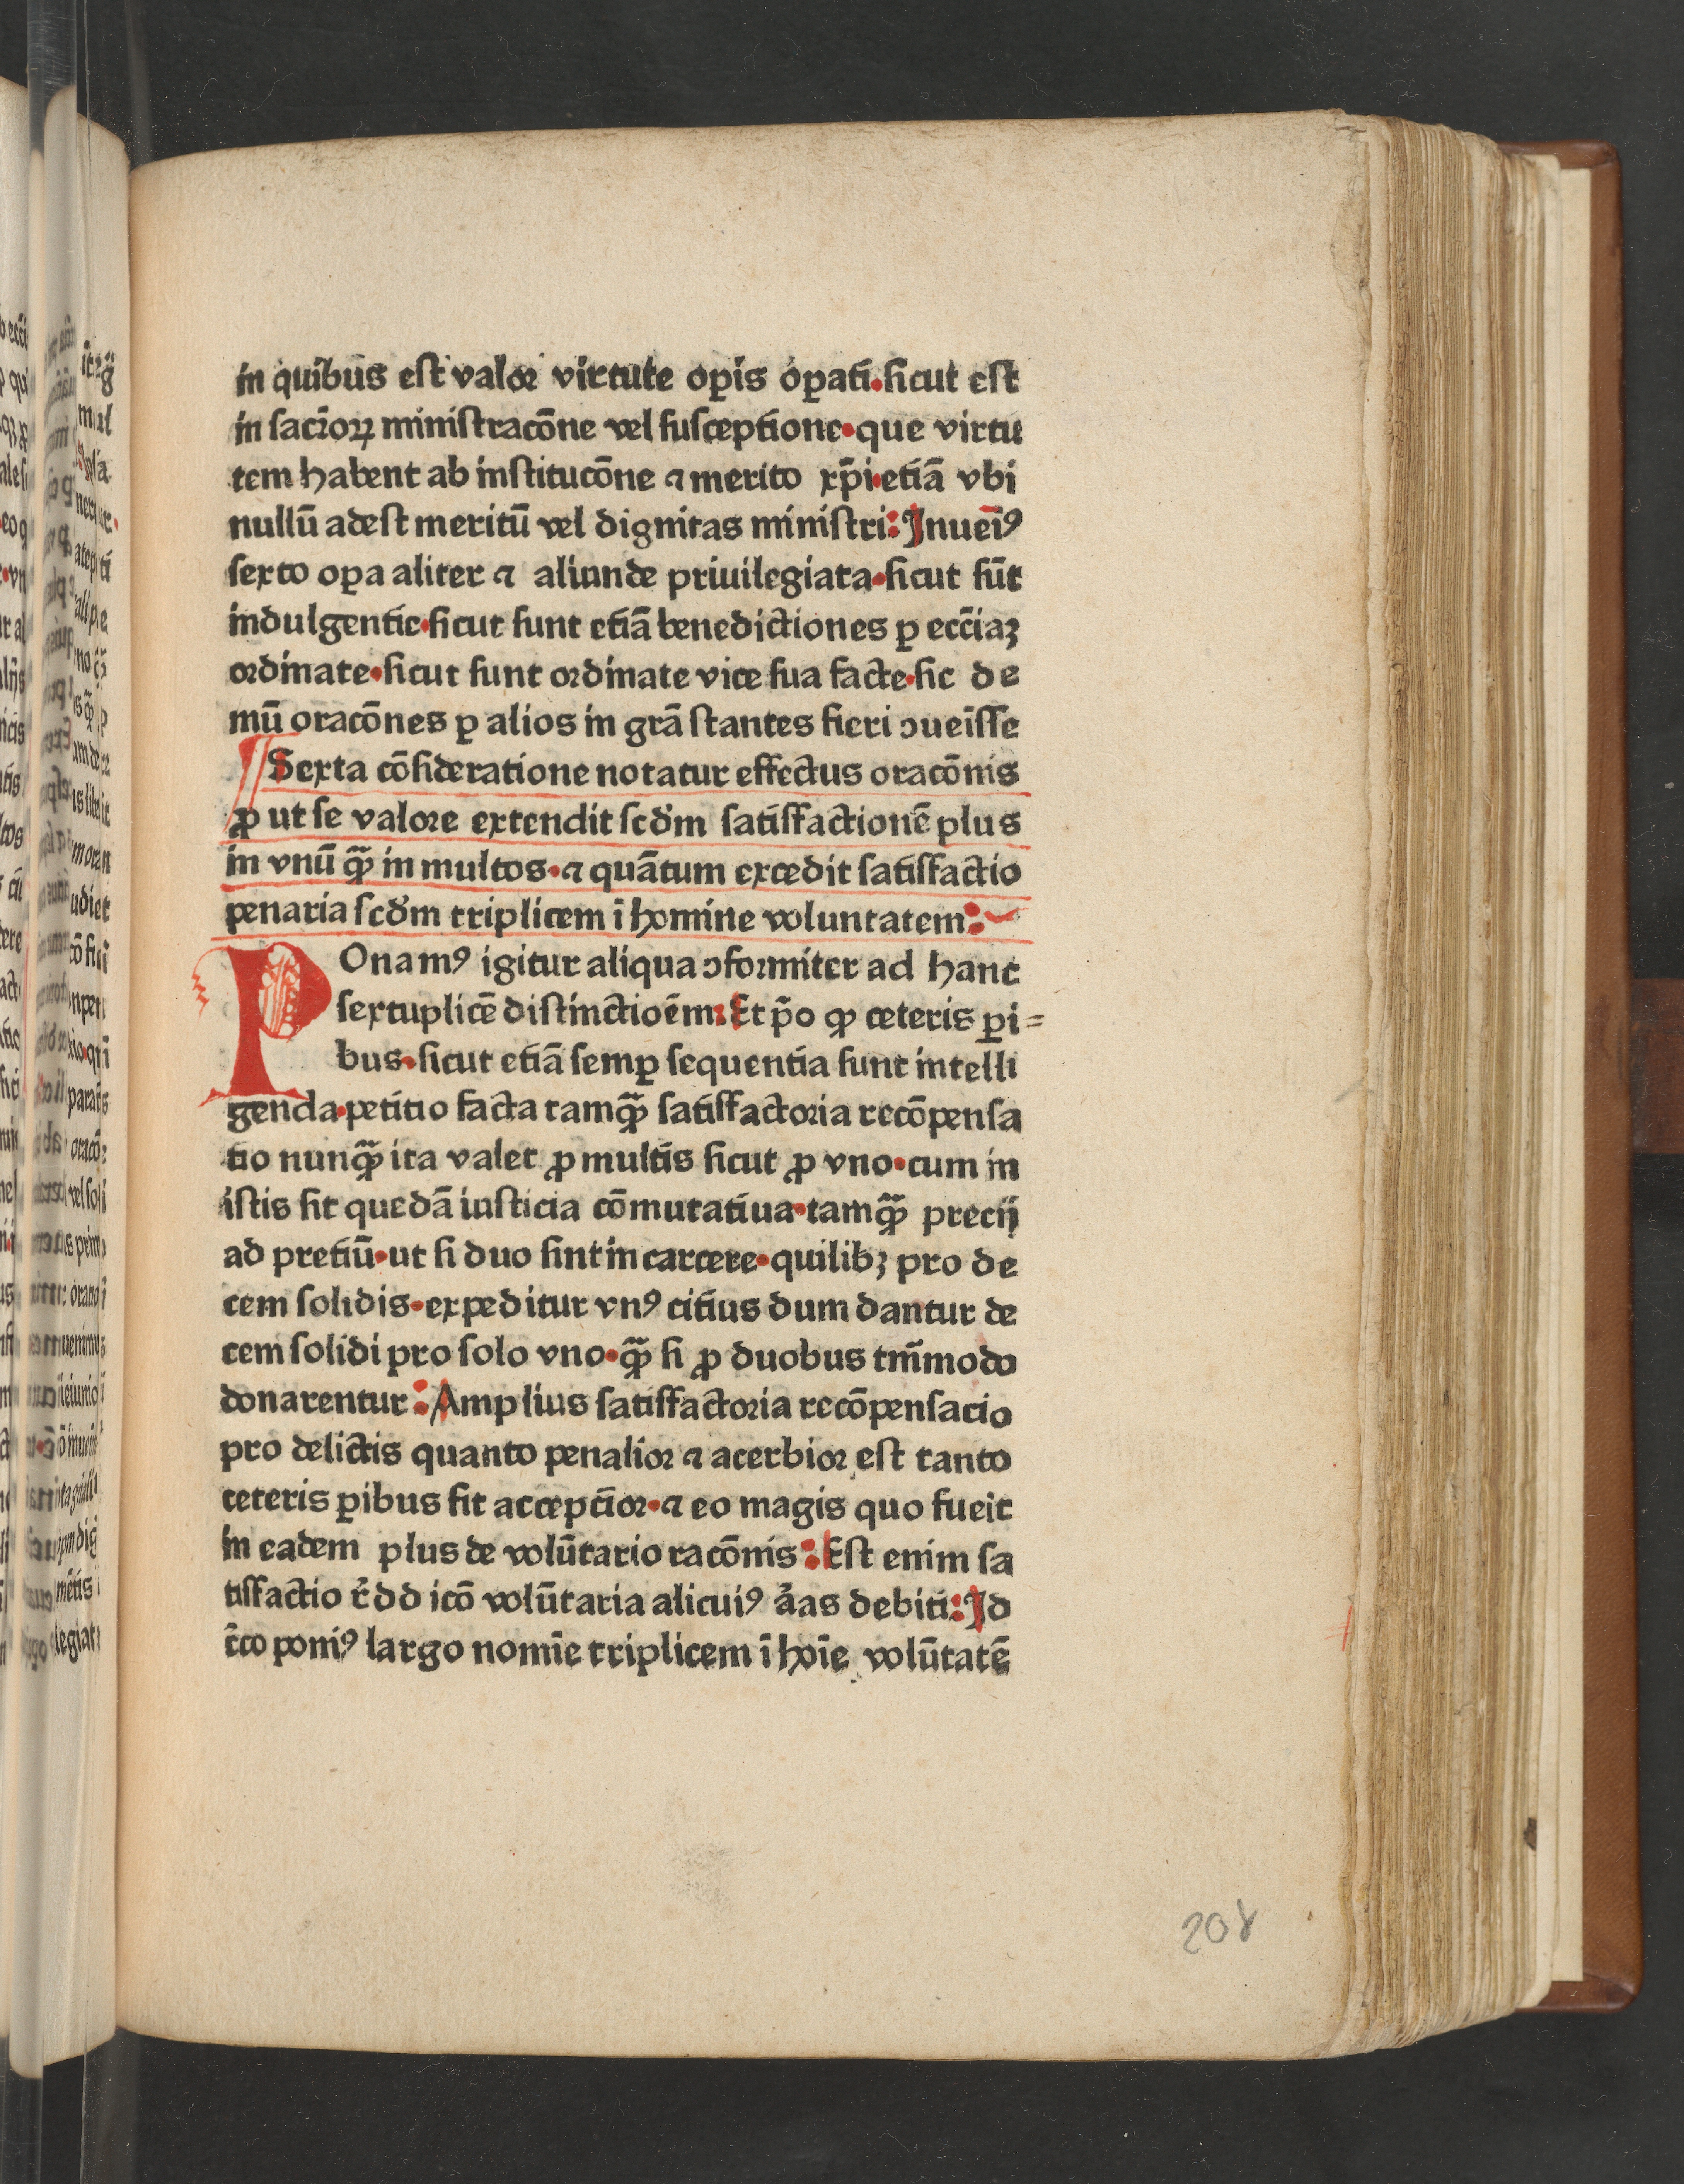 in quibus est valor virtute oꝑis oꝑati.sicut est
in sacr̄oꝝ ministracōne vel susceptione.que virtu
tem habent ab institucōne ⁊ merito xp̄i.etiā vbi
nullū adest meritū vel dignitas ministri: Inueīꝰ
sexto oꝑa aliter ⁊ aliunde priuilegiata.sicut sūt
indulgentie.sicut sunt etiā benedictiones ꝑ ecc̄iaꝫ
ordinate.sicut sunt ordinate vice sua facte.sic de
mū oracōnes ꝑ alios in grā stantes fieri ↄueīsse
Sexta cōsideratione notatur effectus oracōnis
ꝓ ut se valore extendit scd̄m satisfactionē plus
in vnū qꝫ̄ in multos.⁊ quātum excedit satisfactio
penaria scd̄m triplicem ī homine voluntatem:
POnamꝰ igitur aliqua ↄformiter ad hanc
sextuplicē distinctioēm: Et p̄o ꝙ ceteris ꝑi=
bus.sicut etiā semꝑ sequentia sunt intelli
genda.petitio facta tamꝙ̄ satisfactoria recōpensa
tio nunꝙ̄ ita valet ꝓ multis sicut ꝓ vno.cum in
istis sit quedā iusticia cōmutatiua.tamꝙ̄ precij
ad pretiū.ut si duo sint in carcere.quilibꝫ pro de
cem solidis.expeditur vnꝰ citius dum dantur de
cem solidi pro solo vno.ꝙ̄ si ꝓ duobus tm̄modo
donarentur: Amplius satisfactoria recōpensacio
pro delictis quanto penalior ⁊ acerbior est tanto
ceteris ꝑibus fit accepcior.⁊ eo magis quo fueit
in eadem plus de volūtario racōnis: Est enim sa
tisfactio r̄dd icō volūtaria alicuiꝰ āas debiti: Id
c̄co poniꝰ largo nomīe triplicem ī hoīe volūtatē
208